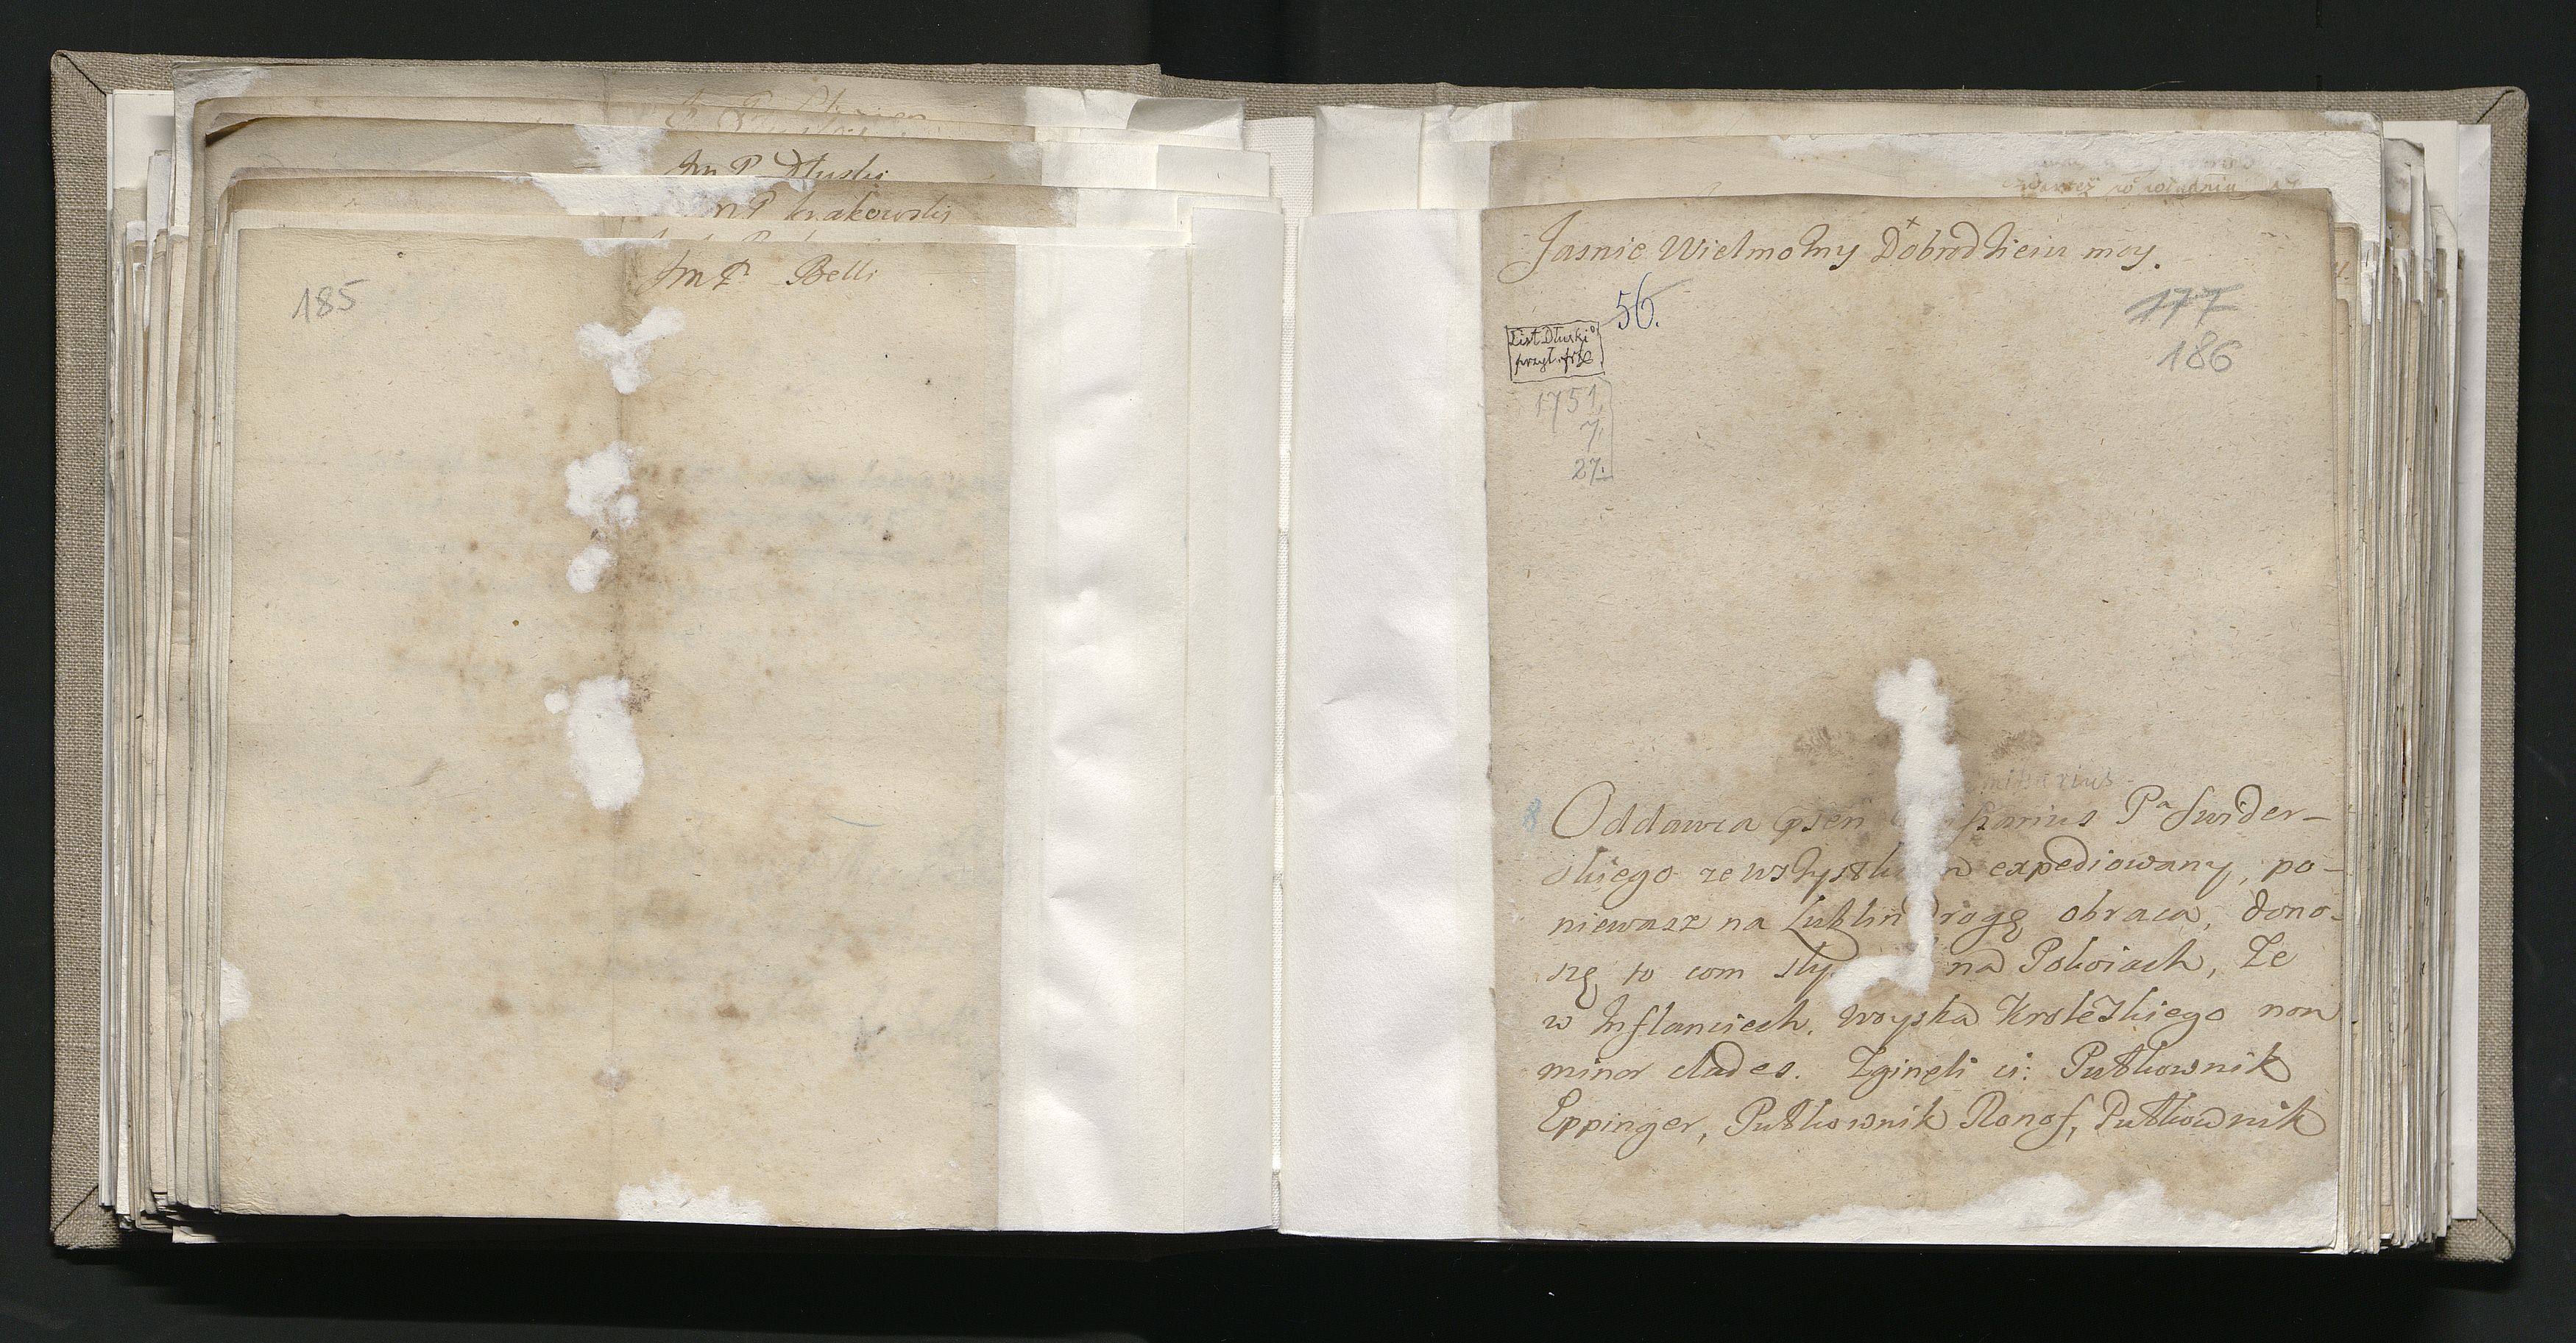 Jm P Dłuski
m P krakowski
Jm P Belli
185
czwartey w wiedniu
Jasnie Wielmożny Dobrodzieiu moy.
56.
List Dłuski
przył.
177
186
1751.
7.
27.
missarius
Oddawca psen ssarius Pa Swider-
skiego ze wszystk m expediowany, po-
niewasz na Lublin rogę obraca, dono-
szę to com sły na Pokoiach, że
w Inflanciech. woyska Kroleskiego non
minor clades. Zginęli ci: Pułkownik
Eppinger, Pułkownik Ronof, Pułkownik